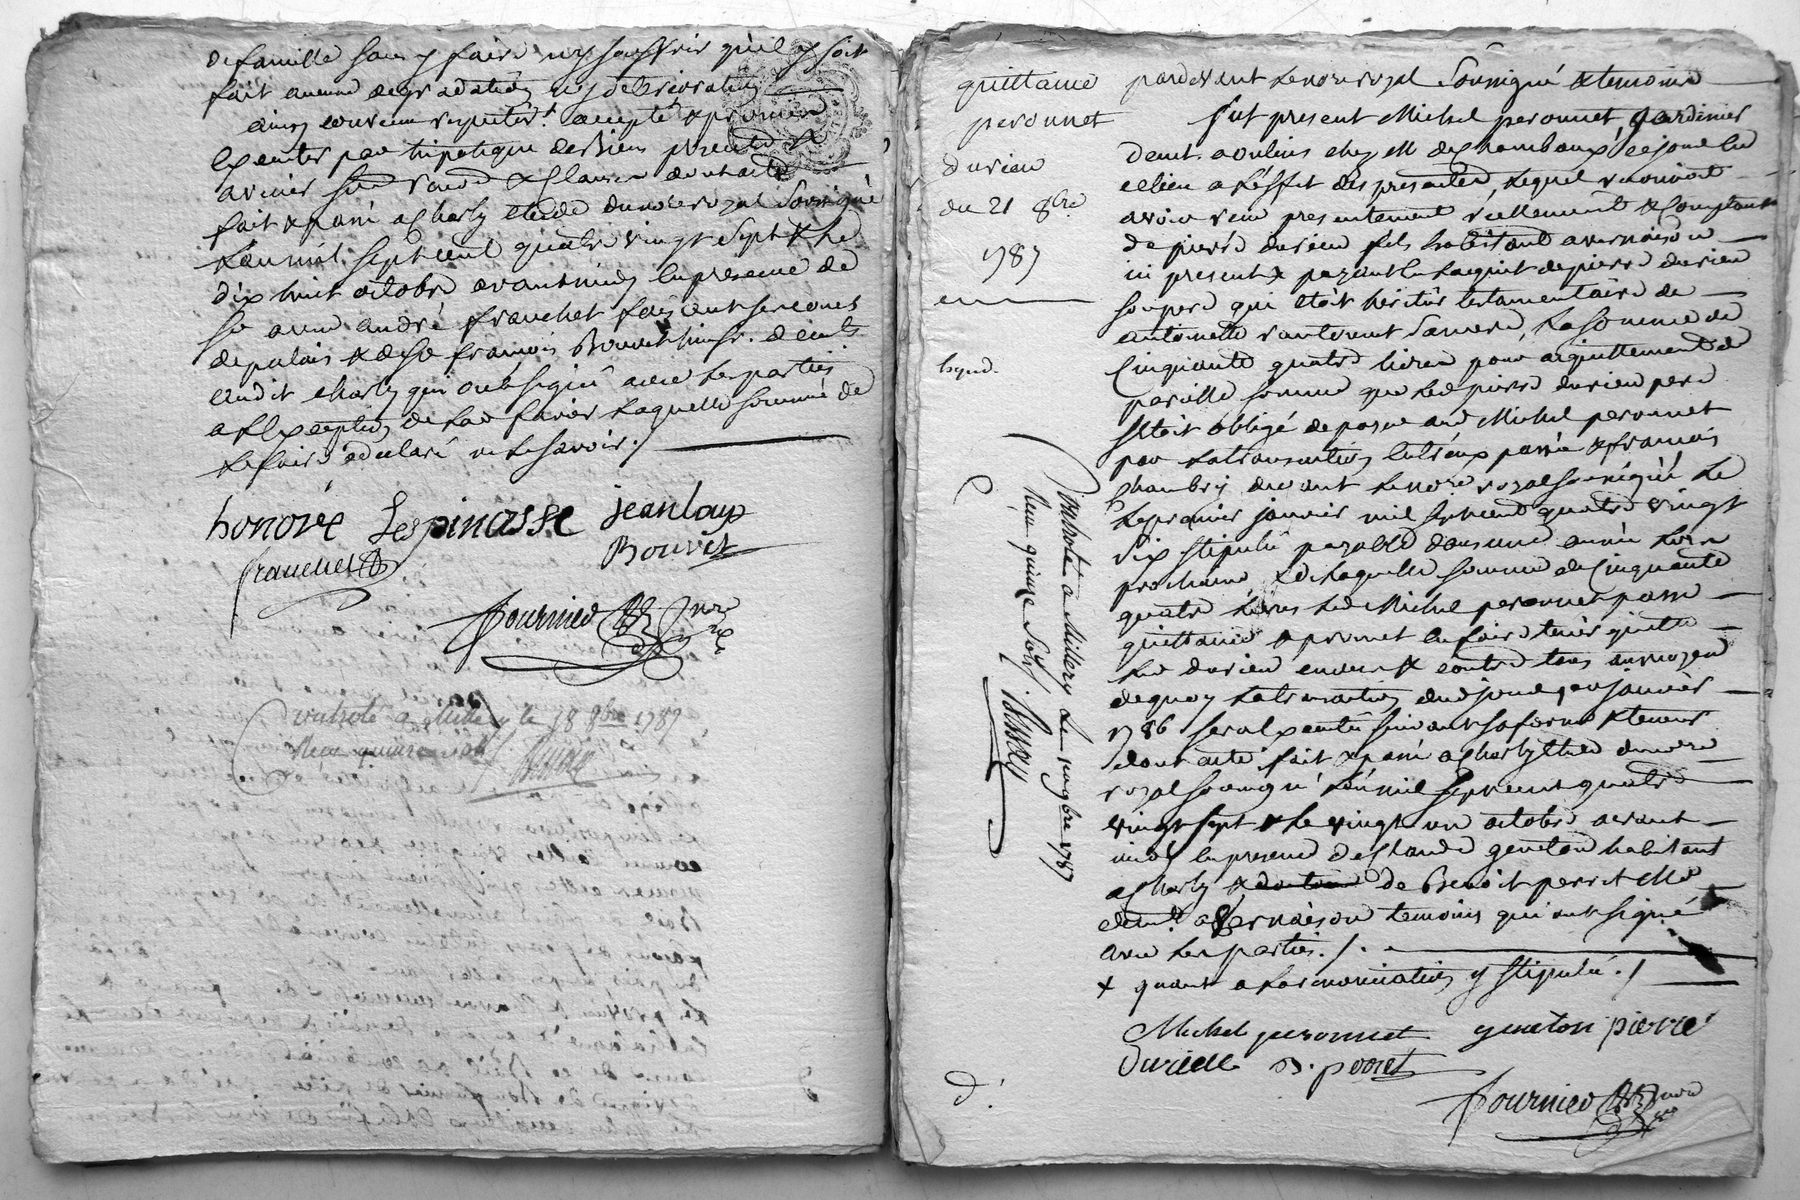 de famille sans y faire ny souffrir quil y soit
fait aucune degradation ny deterioration
ainsy convenu respectivt. accepté & promis
executer par hipoteque des Biens presents &
avenir sous & clauses dont acte
fait & passé a Charly etude du nore royal soussigné
L'an mil sept cent quatre vingt sept & le
dix huit octobre avant midy en presence de
sr andré franchet
de palais & de sr françois Bouvet demt.
audit Charly qui ont signé avec les parties
a l'exception de lad. favier laquelle sommé de
le faire a declaré ne le savoir ./
honoré Lespinasse jean loup
franchet Bouvet
fournier nore
Controlé a Millery le 18 8bre 1787
Reçu quinze sols
quittance
peronnet
durieu
du 21 8bre
1787
Controlé a Millery Le 1787
Reçu quinze Sols
d.
pardevant Le nore royal Soussigné & temoins
fut present Michel peronnet, Jardinier
demt. a oulins chez M. ce jour en
ce lieu a L'effet des presentes, Lequel reconnoit
avoir reçu presentement réellement & Comptant
de pierre durieu fils habitant a vernaison
ici present & payant en L'acquit de pierre durieu
son pere qui etoit heritier testamentaire de
antoinette sa mere, La somme de
Cinquante quatre livres pour acquittement de
pareille somme que led. pierre durieu pere
s'etoit obligé de payer aud. Michel peronnet
par La transaction entr'eux passée & françois
Chambry devant Le nore royal soussigné Le
Le premier janvier mil sept cent quatre vingt
six stipulé payable dans une année Lors
prochaine, & de Laquelle somme de Cinquante
quatre Livres Led. Michel peronnet passe
quittance & promet en faire tenir quitte
Led. durieu envers & contre tous au moyen
de quoy La transaction dud. jour 1er janvier
1786 sera executée suivant sa forme & teneur
dont acte fait & passé a Charly etude du nore
royal soussigné L'an mil sept cent quatre
vingt sept & le vingt un octobre avant
midy en presence de Claude geneton habitant
a Charly & de Benoit perret Md
demt. a Vernaison temoins qui ont signé
avec Les parties ./.
+ quant a La renonciation y stipulée ./
Michel peronnet geneton pierre
durieu B. perret
fournier nore